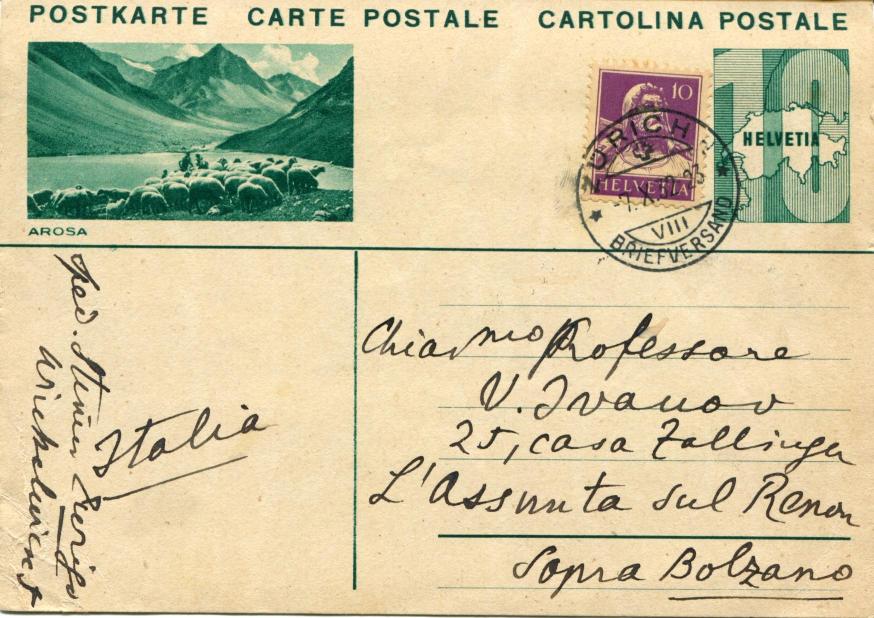 POSTKARTE CARTE POSTALE CARTOLINA POSTALE
AROSA
10
HELVETIA
10
HELVETIA
ZÜRICH
VIII
BRIEFVERSAND
Italia
Chiarmo Professore
V. Ivanov
25, casa Zallinger
L'Assunta sul Renon
Sopra Bolzano